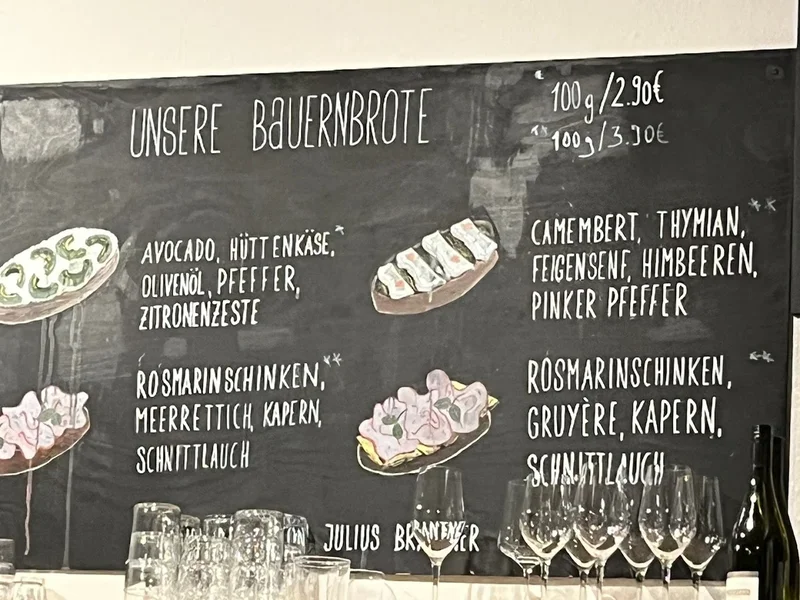 UNSERE BAUERNBROTE
* 100g/2.90€
** 100g/3.90€
AVOCADO, HÜTTENKÄSE,*
OLIVENÖL, PFEFFER,
ZITRONENZESTE
CAMEMBERT, THYMIAN,**
FEIGENSENF, HIMBEEREN,
PINKER PFEFFER
ROSMARINSCHINKEN,**
MEERRETTICH, KAPERN,
SCHNITTLAUCH
ROSMARINSCHINKEN,**
GRUYÈRE, KAPERN,
SCHNITTLAUCH
JULIUS BRANTNER